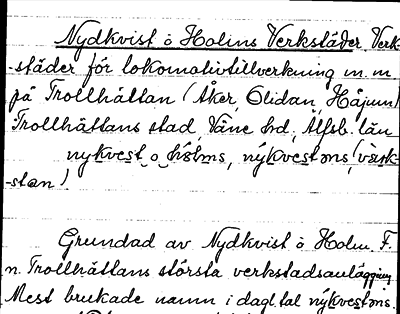 Nydkvist o Holms Verkstäder. Verk-
-städer för lokomotivtillverkning m.m
på Trollhättan (Åker, Olidan, Håjum)
Trollhättans stad, Väne hd, Älfsb. län
nykvest o hólms, nýkvestəns (værk-
-stan)
Grundad av Nydkvist o Holm. F.
n. Trollhättans största verkstadsanläggning
Mest brukade namn i dagl. tal nýkvestəns.